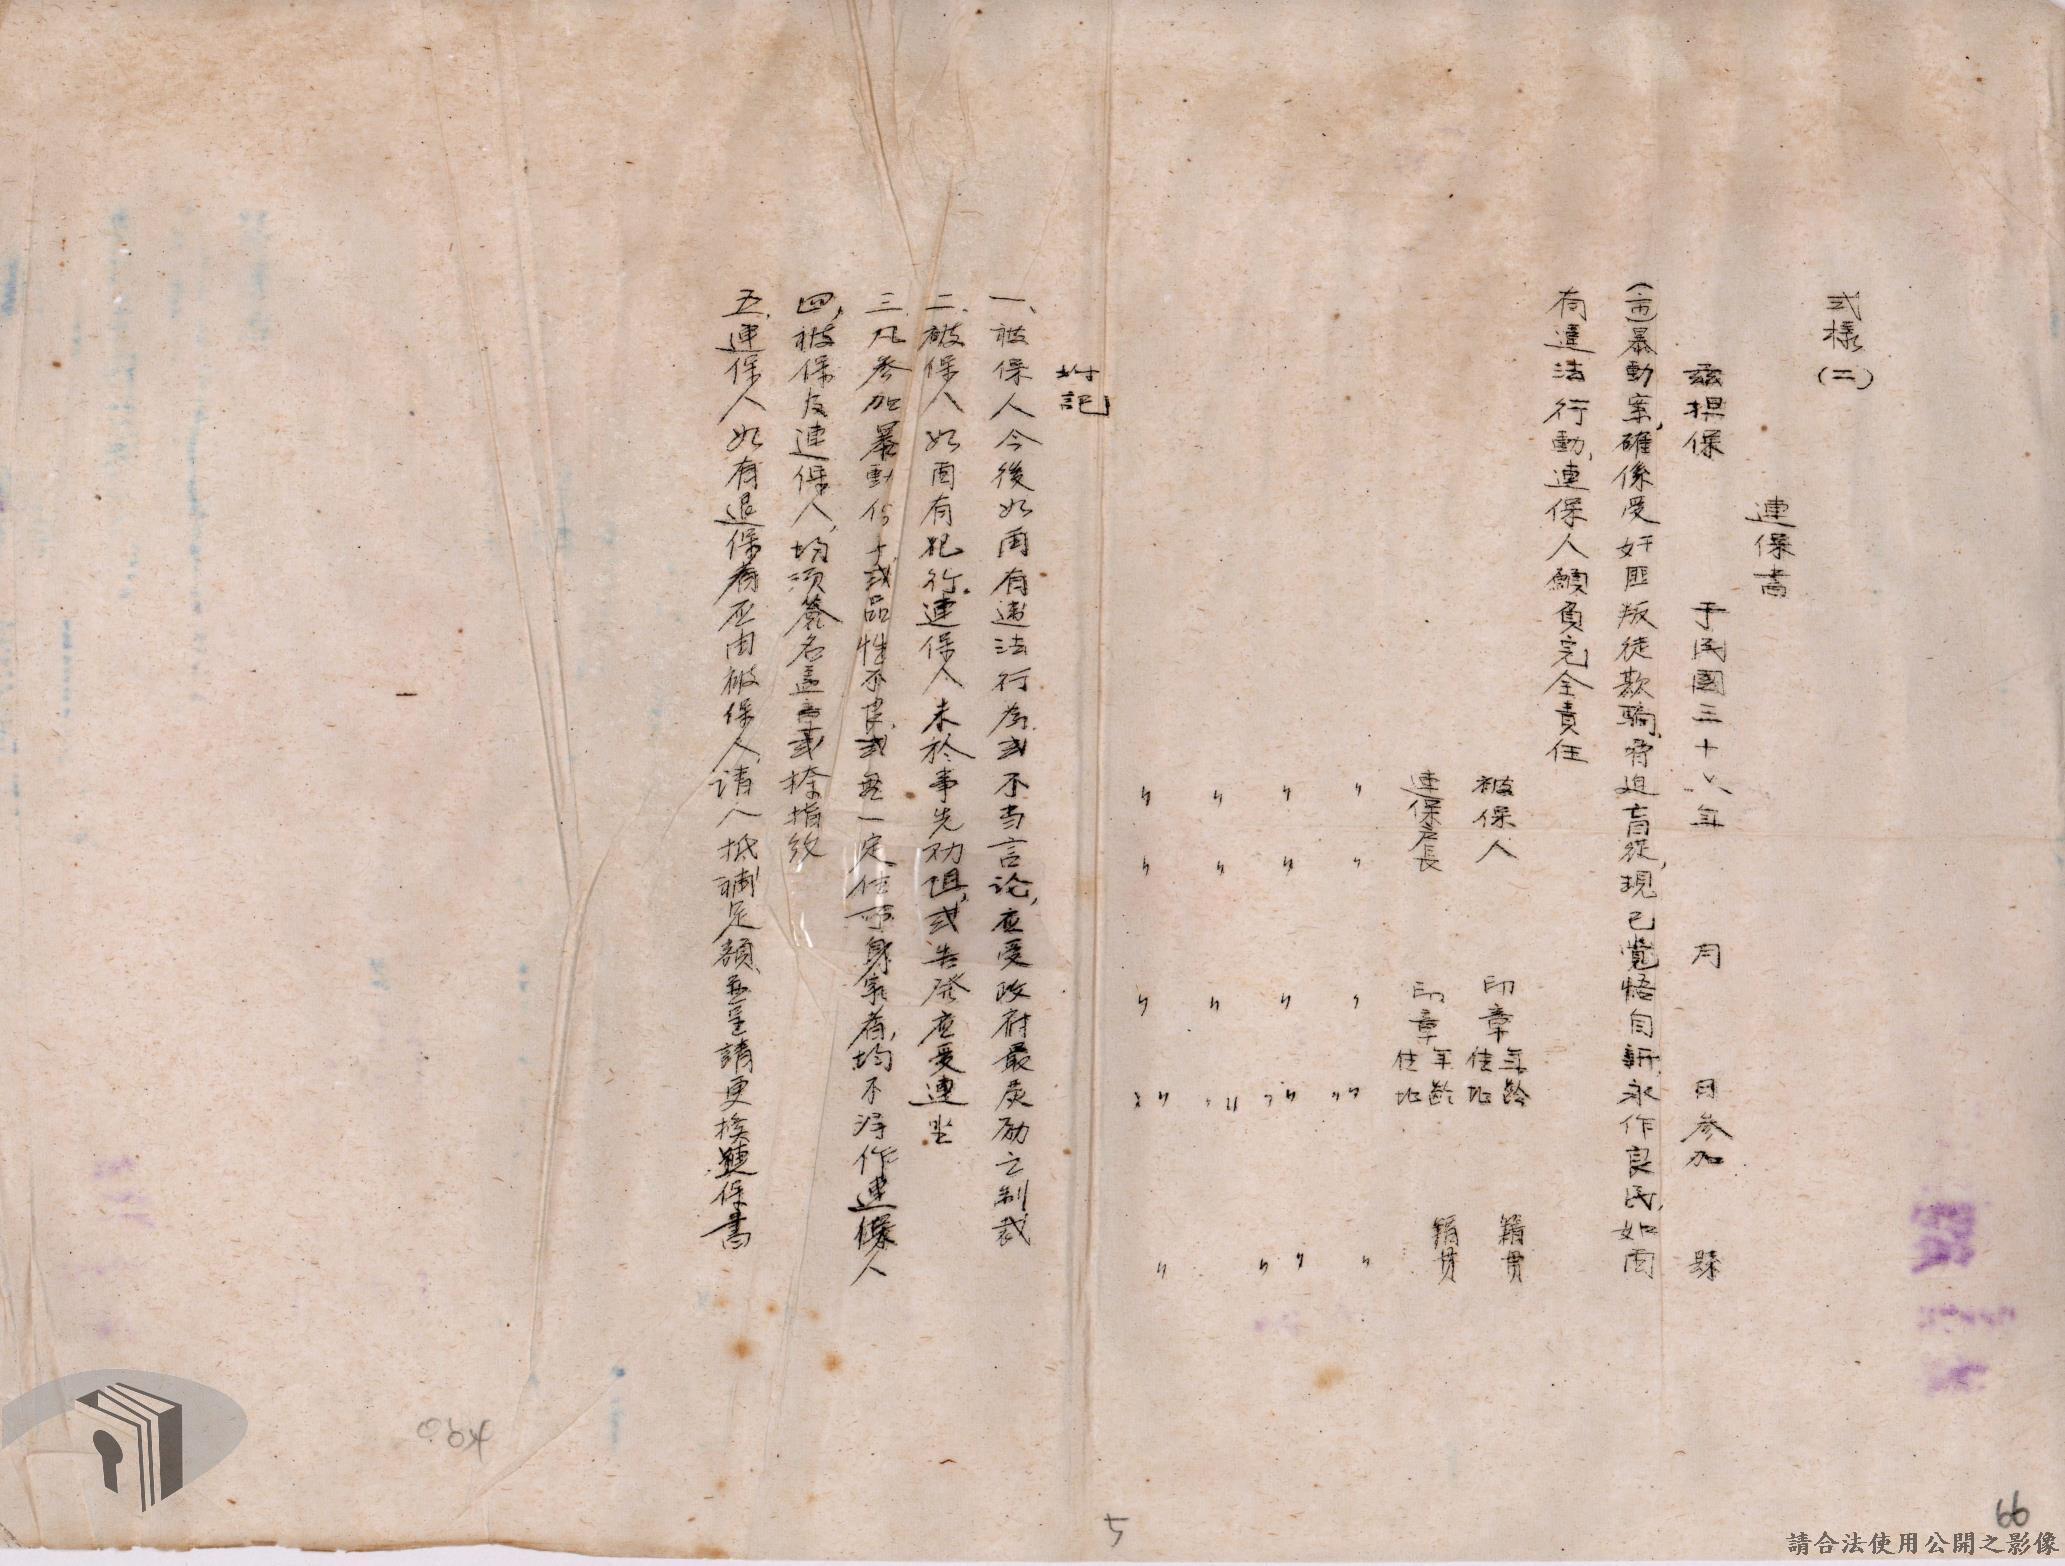 式樣(二)
連保書
茲担保 于民國三十六年 月 日參加 縣
(市)暴動案,確係受奸匪叛徒欺騙,脅迫盲從,現已覺悟自新,永作良民,如再
有違法行動,連保人願負完全責任
被保人 印章 年齡 住地 籍貫
連保戶長 印章 年齡 住地 籍貫
〃 〃 〃 〃 〃
〃 〃 〃 〃 〃
〃 〃 〃 〃 〃
〃 〃 〃 〃 〃
附記
一、被保人今後如再有違法行為或不当言论,应受政府最严励之制裁
二、被保人如再有犯行,連保人未於事先劝阻,或告發应受連坐
三、凡參加暴動份子,或品性不良,或無一定住所身家者,均不得作連保人
四,被保及連保人,均须簽名盖章或捺指紋
五,連保人如有退保者应由被保人请人抵補足額並呈請更換連保書
064
5
66
請合法使用公開之影像